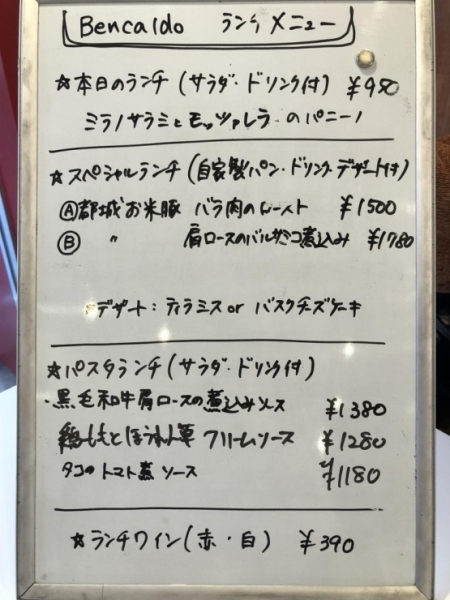 Bencaldo ランチメニュー
☆本日のランチ (サラダ・ドリンク付) ¥980
ミラノサラミとモッツァレラのパニーノ
☆スペシャルランチ (自家製パン・ドリンク・デザート付)
Ⓐ都城お米豚 バラ肉のロースト ¥1500
Ⓑ 〃 肩ロースのバルサミコ煮込み ¥1780
デザート：ティラミス or バスクチーズケーキ
☆パスタランチ (サラダ・ドリンク付)
・黒毛和牛肩ロースの煮込みソース ¥1380
鶏ももとほうれん草 クリームソース ¥1280
タコのトマト煮 ソース ¥1180
☆ランチワイン (赤・白) ¥390